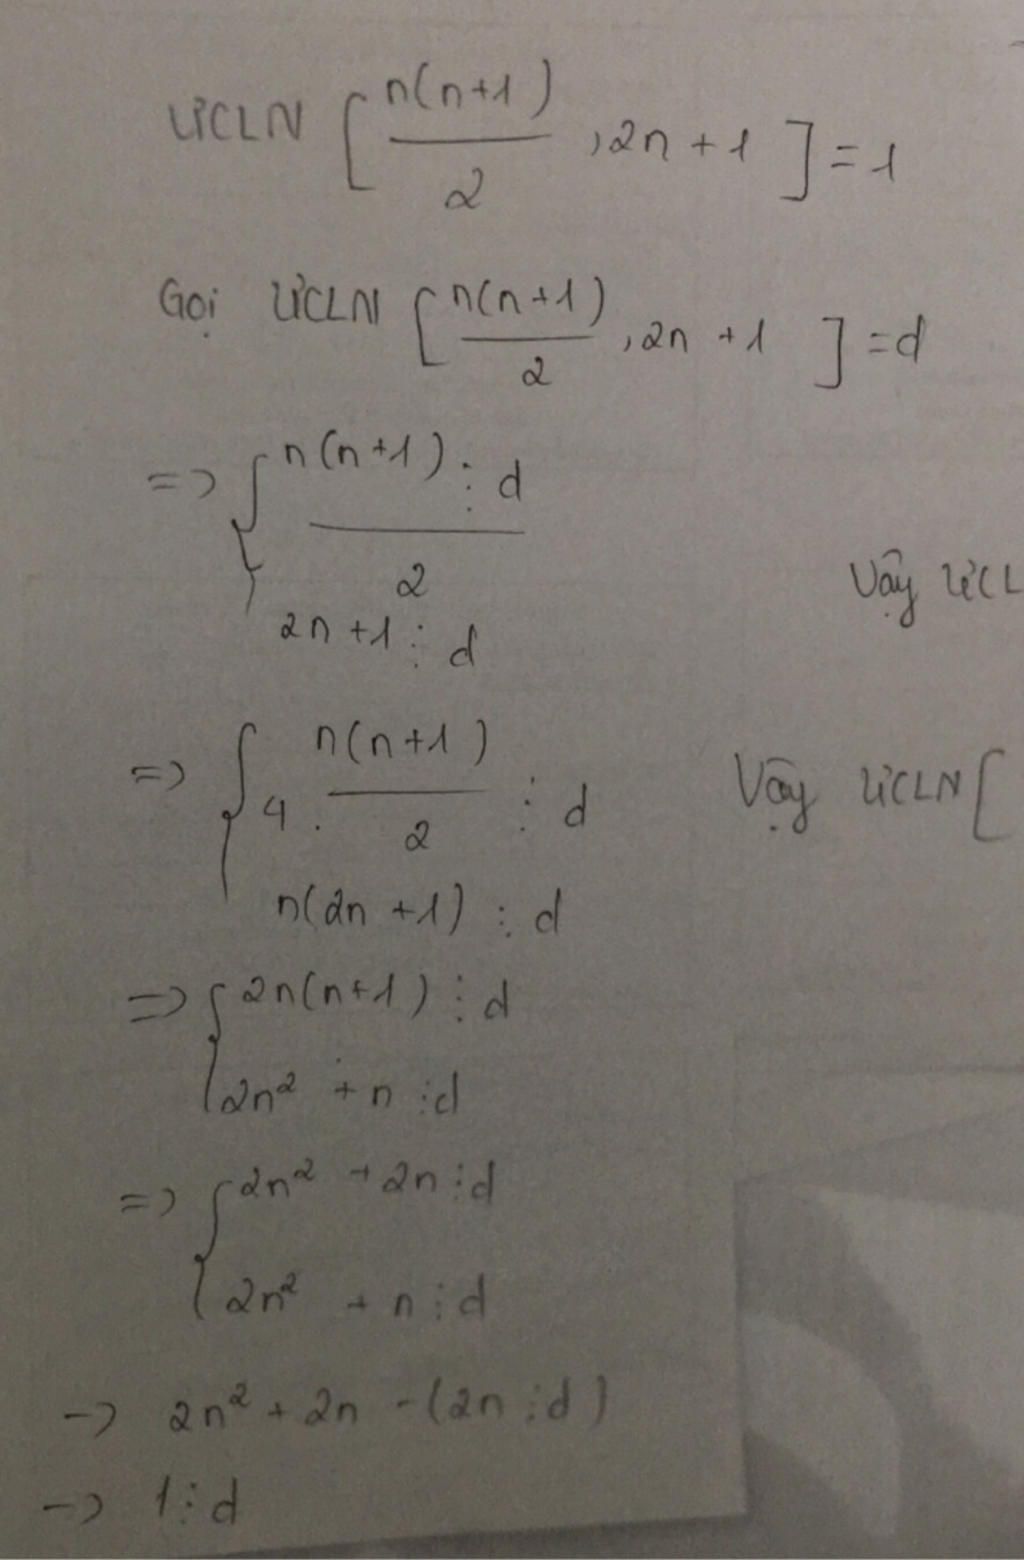 ƯCLN [ n(n+1)/2 , 2n + 1 ] = 1
Gọi ƯCLN [ n(n+1)/2 , 2n + 1 ] = d
=> { n(n+1) ⋮ d
2
2n +1 ⋮ d
Vậy ƯCL
=> { 4 . n(n+1)/2 ⋮ d
n(2n +1) ⋮ d
Vậy ƯCLN [
=> { 2n(n+1) ⋮ d
2n² + n ⋮ d
=> { 2n² + 2n ⋮ d
2n² + n ⋮ d
-> 2n² + 2n - (2n ⋮ d)
-> 1 ⋮ d